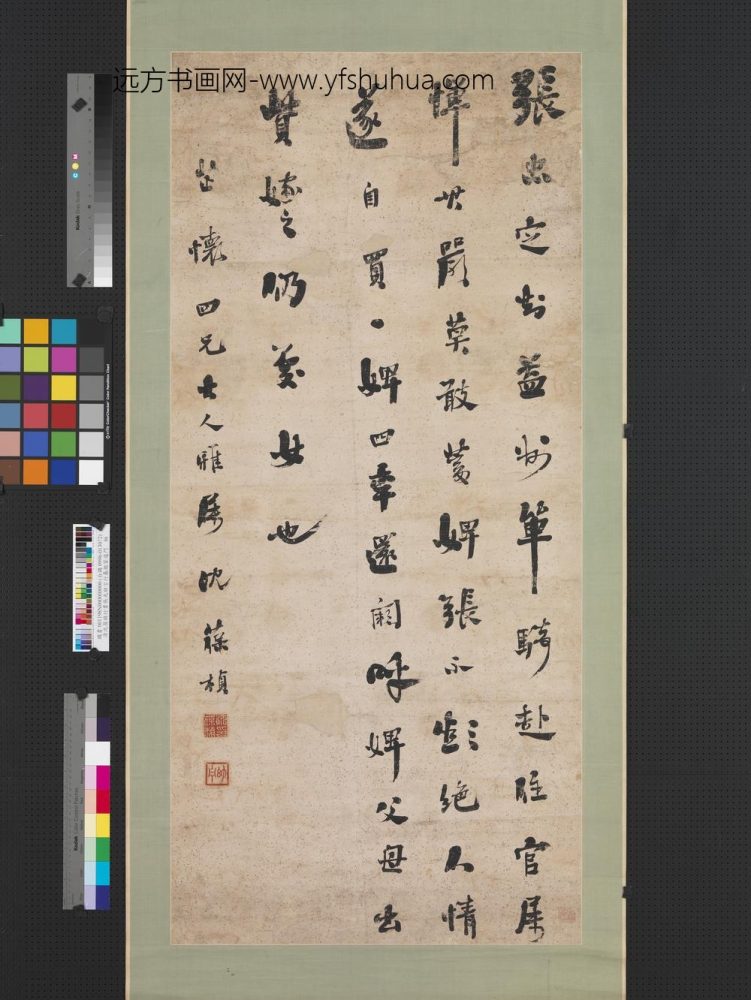 远方书画网-www.yfshuhua.com
張忠定知益州單騎赴任官屬
憚其嚴莫敢蓄婢張不欲絕人情
遂自買一婢四年還闕呼婢父母出
貲嫁之仍處女也
芷懷四兄大人雅屬 沈葆楨